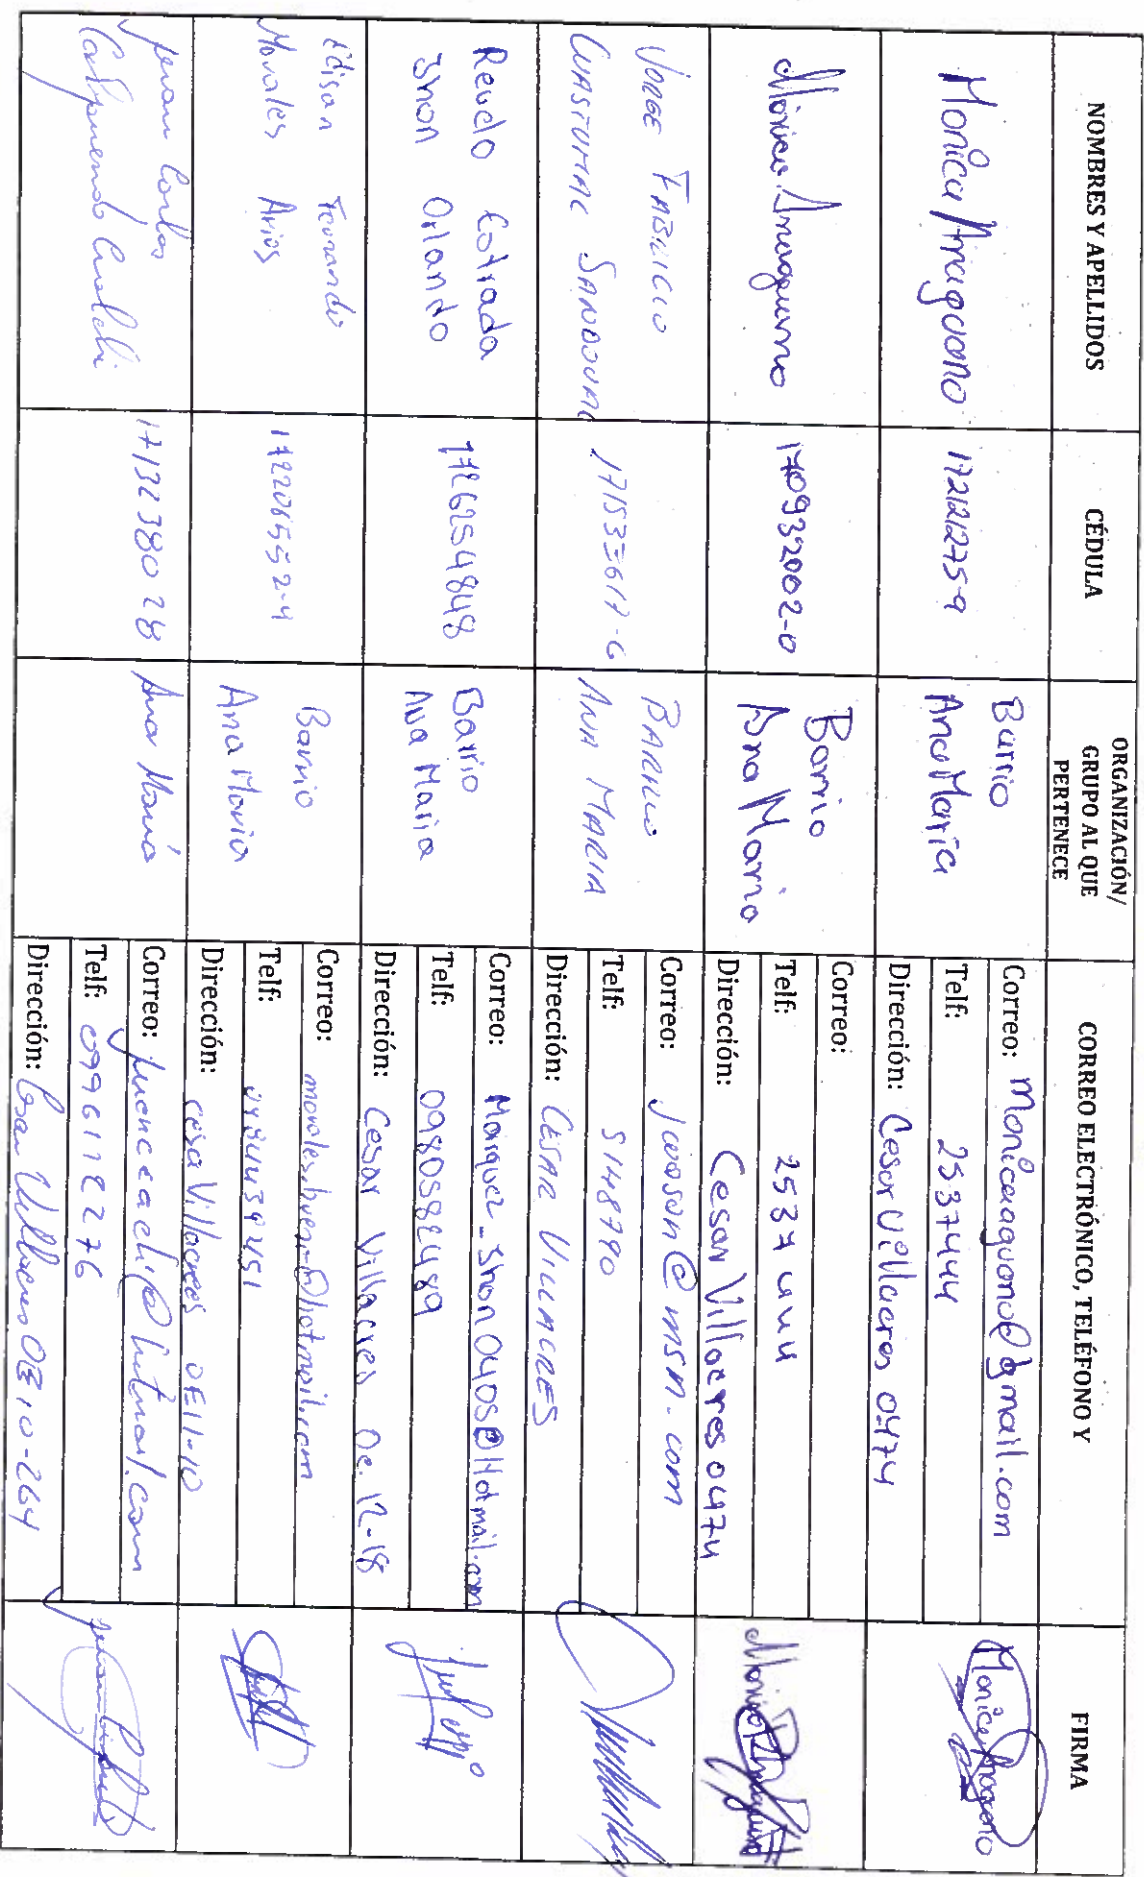 NOMBRES Y APELLIDOS
CÉDULA
ORGANIZACIÓN/
GRUPO AL QUE
PERTENECE
CORREO ELECTRÓNICO, TELÉFONO Y
FIRMA
Monica Anaguano
172121275-9
Barrio
Ana María
Correo: monicaaguano@gmail.com
Telf: 2537444
Dirección: Cesar Villacres 0474
Monica Anaguano
170932002-0
Barrio
Ana Maria
Correo:
Telf: 2537444
Dirección: Cesar Villacres 0474
JORGE FABRICIO
GUASTUMAL SANDOVAL
BARRIO
ANA MARIA
Correo: @msn.com
Telf: 5148790
Dirección: CESAR VILLACRES
Revelo Cotrada
Jhon Orlando
1726254848
Barrio
Ana Maria
Correo: Marquez_Jhon0405@Hotmail.com
Telf: 0980582489
Dirección: Cesar Villacres Oe.12-18
Edison Fernando
Morales Arias
172206552-4
Barrio
Ana Maria
Correo:
Telf:
Dirección: cesar Villacres OE11-10
Juan Carlos
1713238028
Ana María
Correo:
Telf: 0996112276
Dirección: Cesar Villacres OE10-264